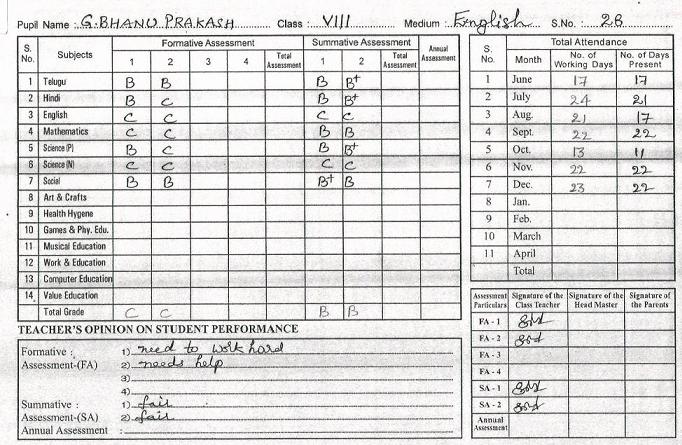 Pupil Name : G.BHANU PRAKASH Class : VIII Medium : English S.No. : 26
S. No. Subjects Formative Assessment Summative Assessment Annual Assessment
1 2 3 4 Total Assessment 1 2 Total Assessment
1 Telugu B B B B+
2 Hindi B C B B+
3 English C C C C
4 Mathematics C C B B
5 Science (P) B C B B+
6 Science (N) C C C C
7 Social B B B+ B
8 Art & Crafts
9 Health Hygene
10 Games & Phy. Edu.
11 Musical Education
12 Work & Education
13 Computer Education
14 Value Education
Total Grade C C B B
TEACHER'S OPINION ON STUDENT PERFORMANCE
Formative : 1) need to work hard
Assessment-(FA) 2) needs help
3)
4)
Summative : 1) fair
Assessment-(SA) 2) fair
Annual Assessment :
Total Attendance
S. No. Month No. of Working Days No. of Days Present
1 June 17 17
2 July 24 21
3 Aug. 21 17
4 Sept. 22 22
5 Oct. 13 11
6 Nov. 22 22
7 Dec. 23 22
8 Jan.
9 Feb.
10 March
11 April
Total
Assessment Particulars Signature of the Class Teacher Signature of the Head Master Signature of the Parents
FA - 1
FA - 2
FA - 3
FA - 4
SA - 1
SA - 2
Annual Assessment